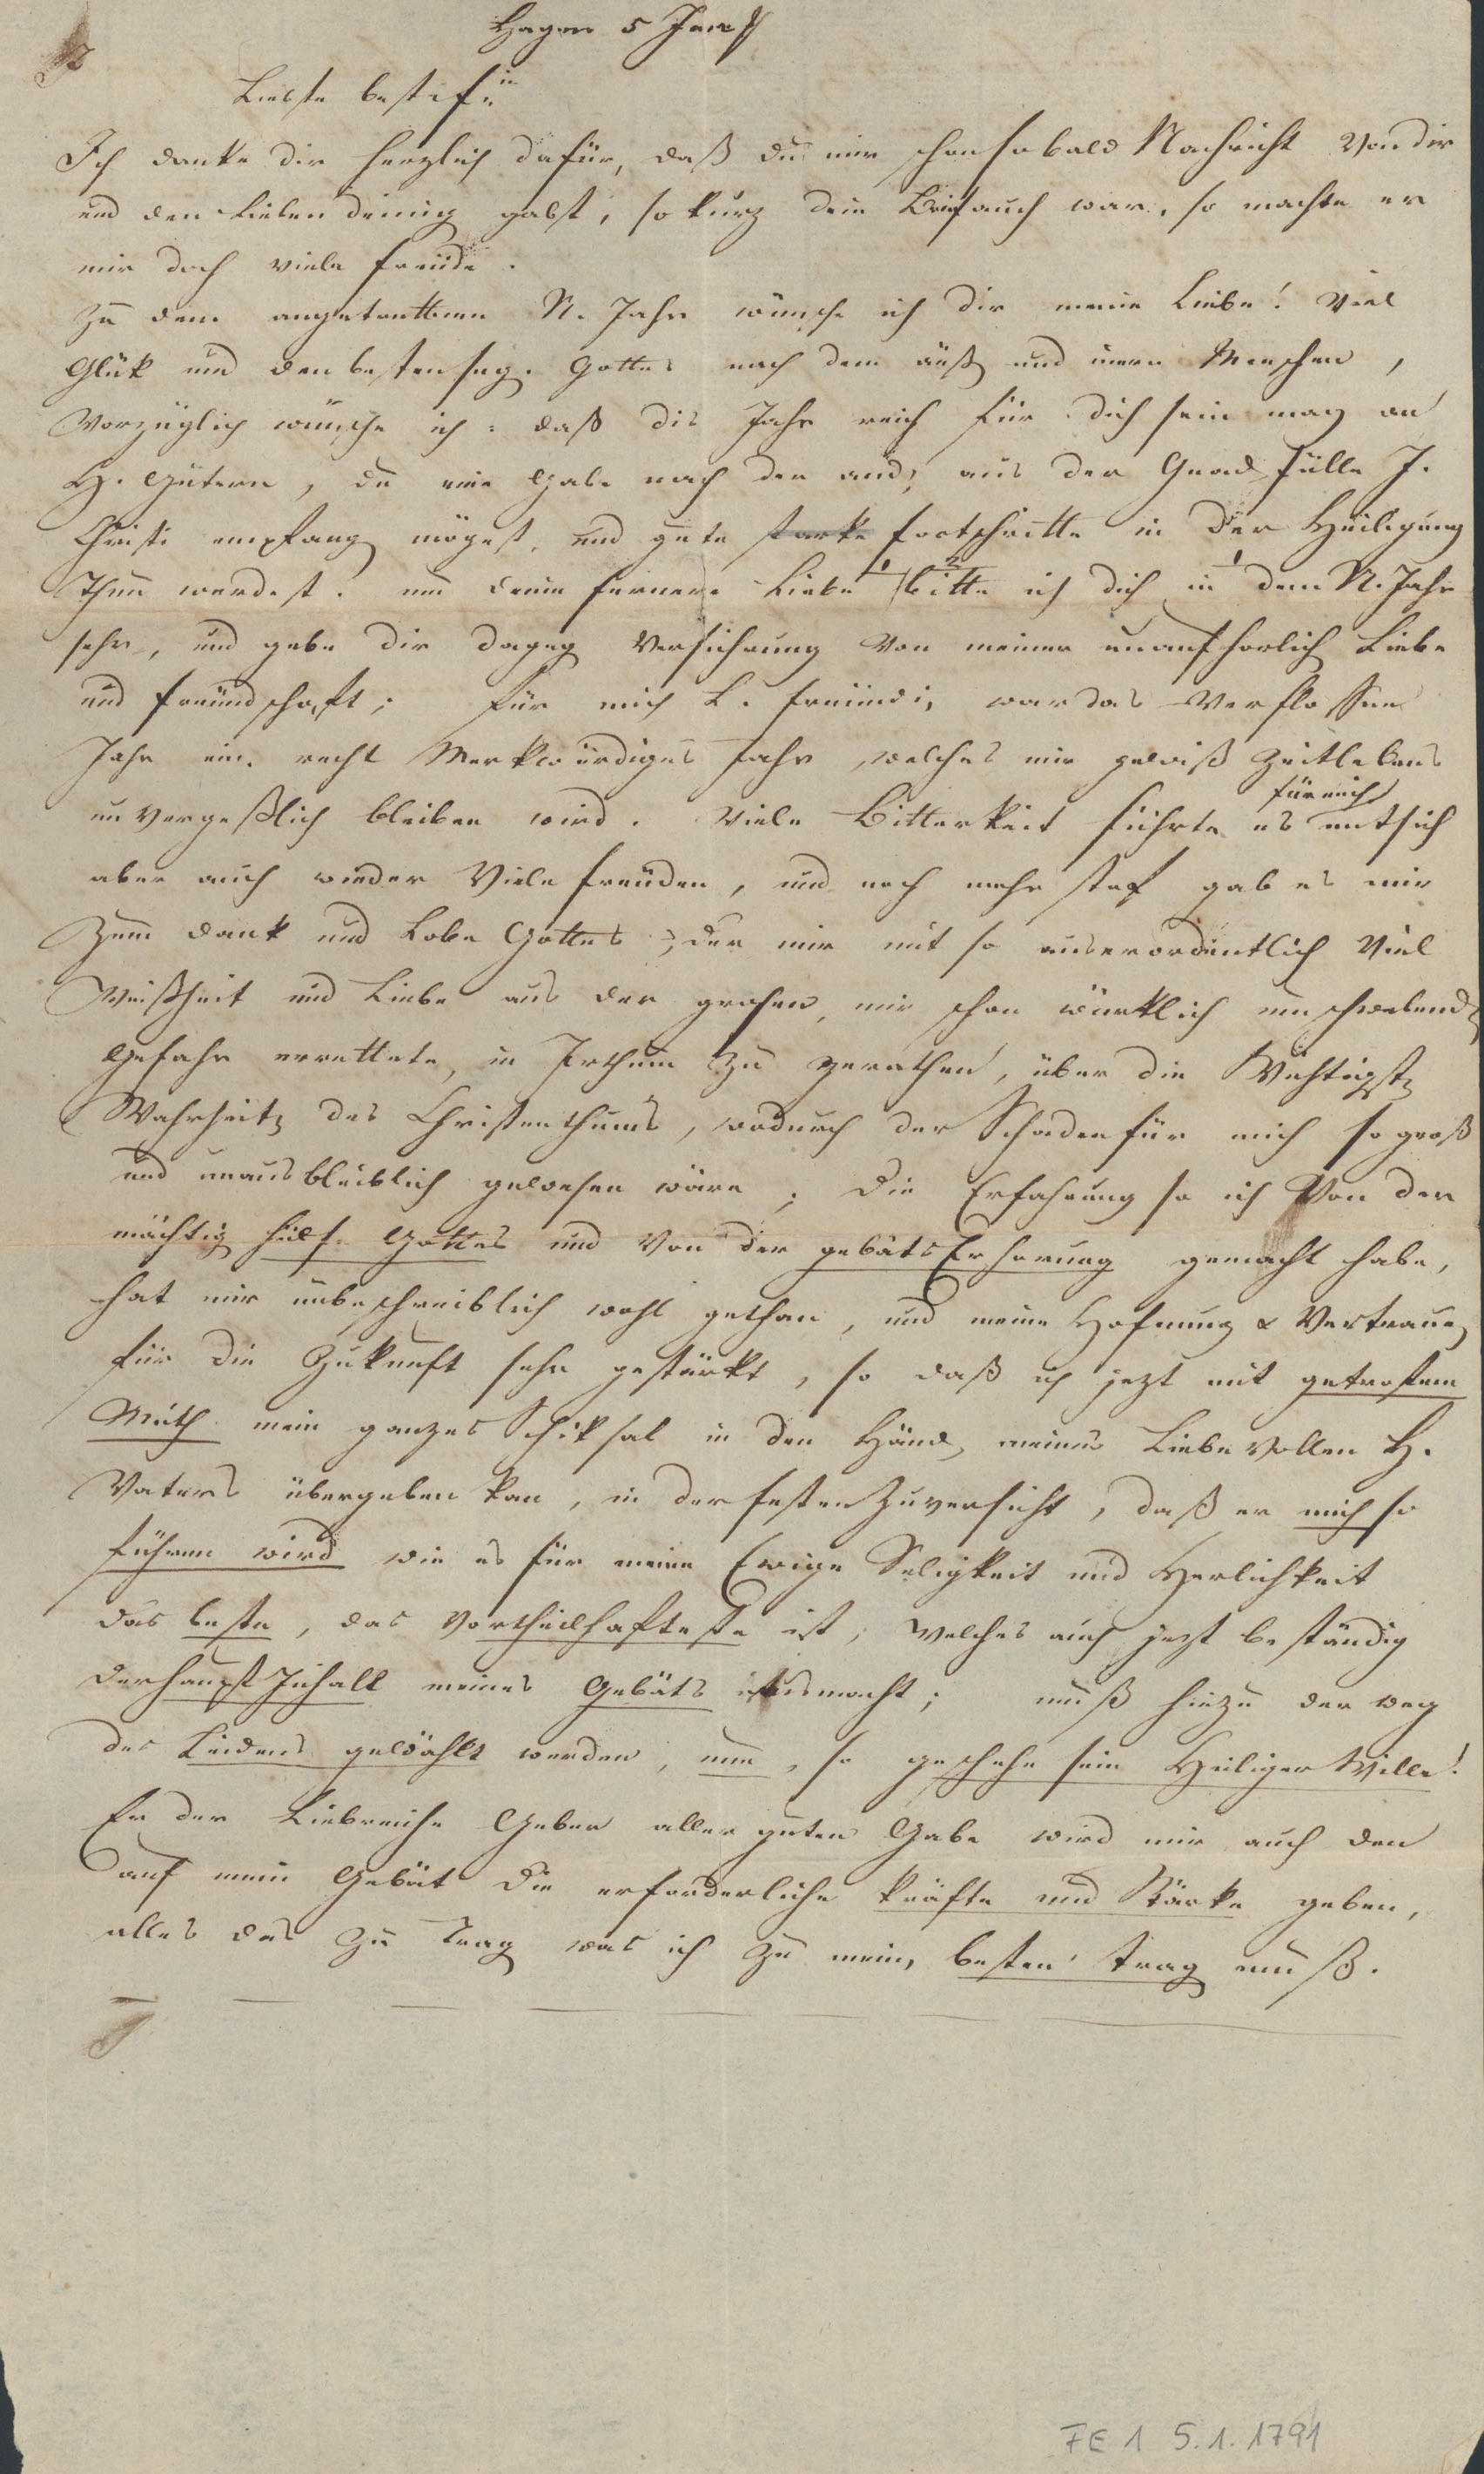 Hagen 5 Janr
Liebste beste fr.in
Ich danke dir herzlich dafür, daß du mir schon so bald Nachricht von dir
und den Lieben deinig gabst, so kurz dein Brief auch war, so machte er
mir doch viele freude.
Zu dem angetrettenen N. Jahr wünsche ich dir meine Liebe! viel
Glük und den besten seg. Gottes nach dem äuß und inern Menschen,
vorzüglich wünsche ich: daß dis Jahr reich für dich sein mag an
H. Gütern, du eine Gabe nach der and, aus der Gnad fülle J.
Christi empfang mögest, und gute starke fortschritte in der Heiligung
Thun werdest. um deine fernere Liebe bitte ich dich in dem N. Jahr
sehr, und gebe dir dageg Versichrung von meiner unaufhorlich Liebe
und freundschaft; für mich L. freundi, war das verflossene
Jahr ein recht Merkwürdiges Jahr, welches mir gewiß Zeitlebens
unvergeßlich bleiben wird. viele Bitterkeit führte es für mich mit sich
aber auch wieder viele freuden, und noch mehr stof gab es mir
Zum dank und Lobe Gottes, der mir mit so auserordentlich viel
Weißheit und Liebe aus der grosen, mir schon würklich umschwebend
Gefahr errettete, in Irthum zu gerathen, über die Wichtigst
Wahrheit des Christenthums, wodurch der Schaden für mich so groß
und unausbleiblich gewesen wäre; Die Erfahrung so ich von der
mächtig hülf Gottes und von der gebäts Erhorung gemacht habe,
hat mir unbeschreiblich wohl gethan, und meine Hofnung & Vertraue
für die Zukunft sehr gestärkt, so daß ich jezt mit getrostem
Muth mein ganzes Schiksal in den Händ meines Liebevollen H.
Vaters übergeben kan, in der festen Zuversicht, daß er mich so
führen wird wie es für meine Ewige Seligkeit und Herlichkeit
das beste, das Vortheilhafteste ist, welches auch jezt beständig
der haupt Inhalt meines Gebäts ausmacht; muß hiezu der weg
des Leidens gewählt werden, nun, so geschehe sein Heiliger Wille!
Er der Liebreiche Geber aller guten Gabe wird mir auch den
auf mein Gebät die erforderliche kräfte und Stärke geben,
alles das zu Trag was ich zu mein, besten trag muß.
FE 1 5.1.1791